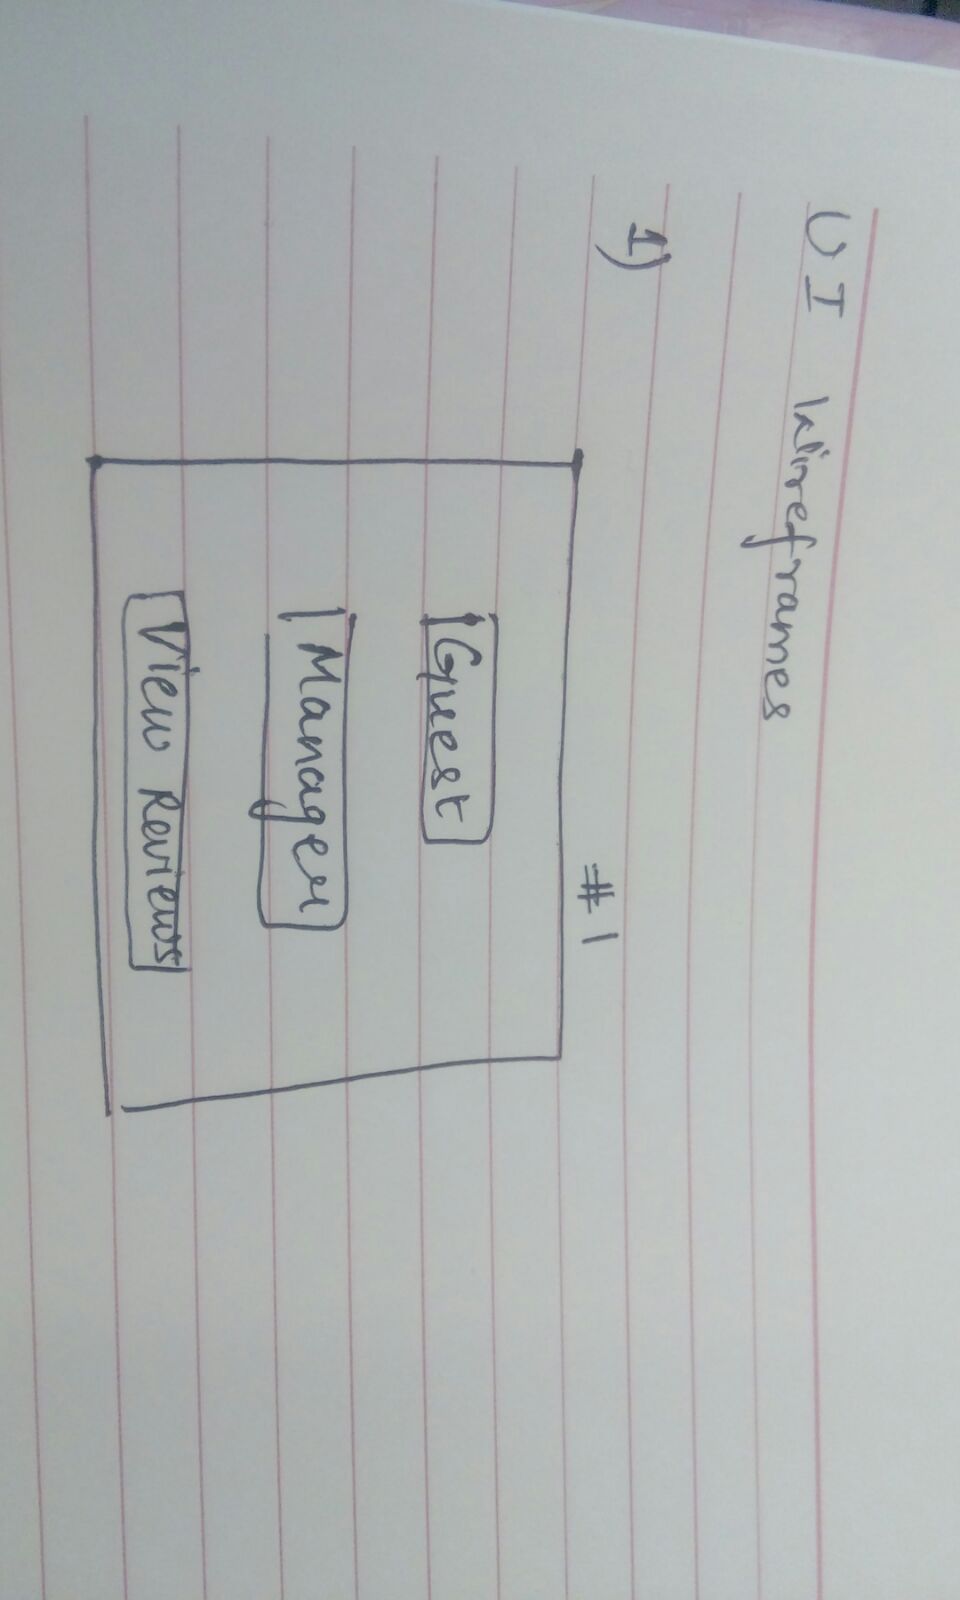 UI Wireframes
1)
#1
Guest
Manager
View Reviews